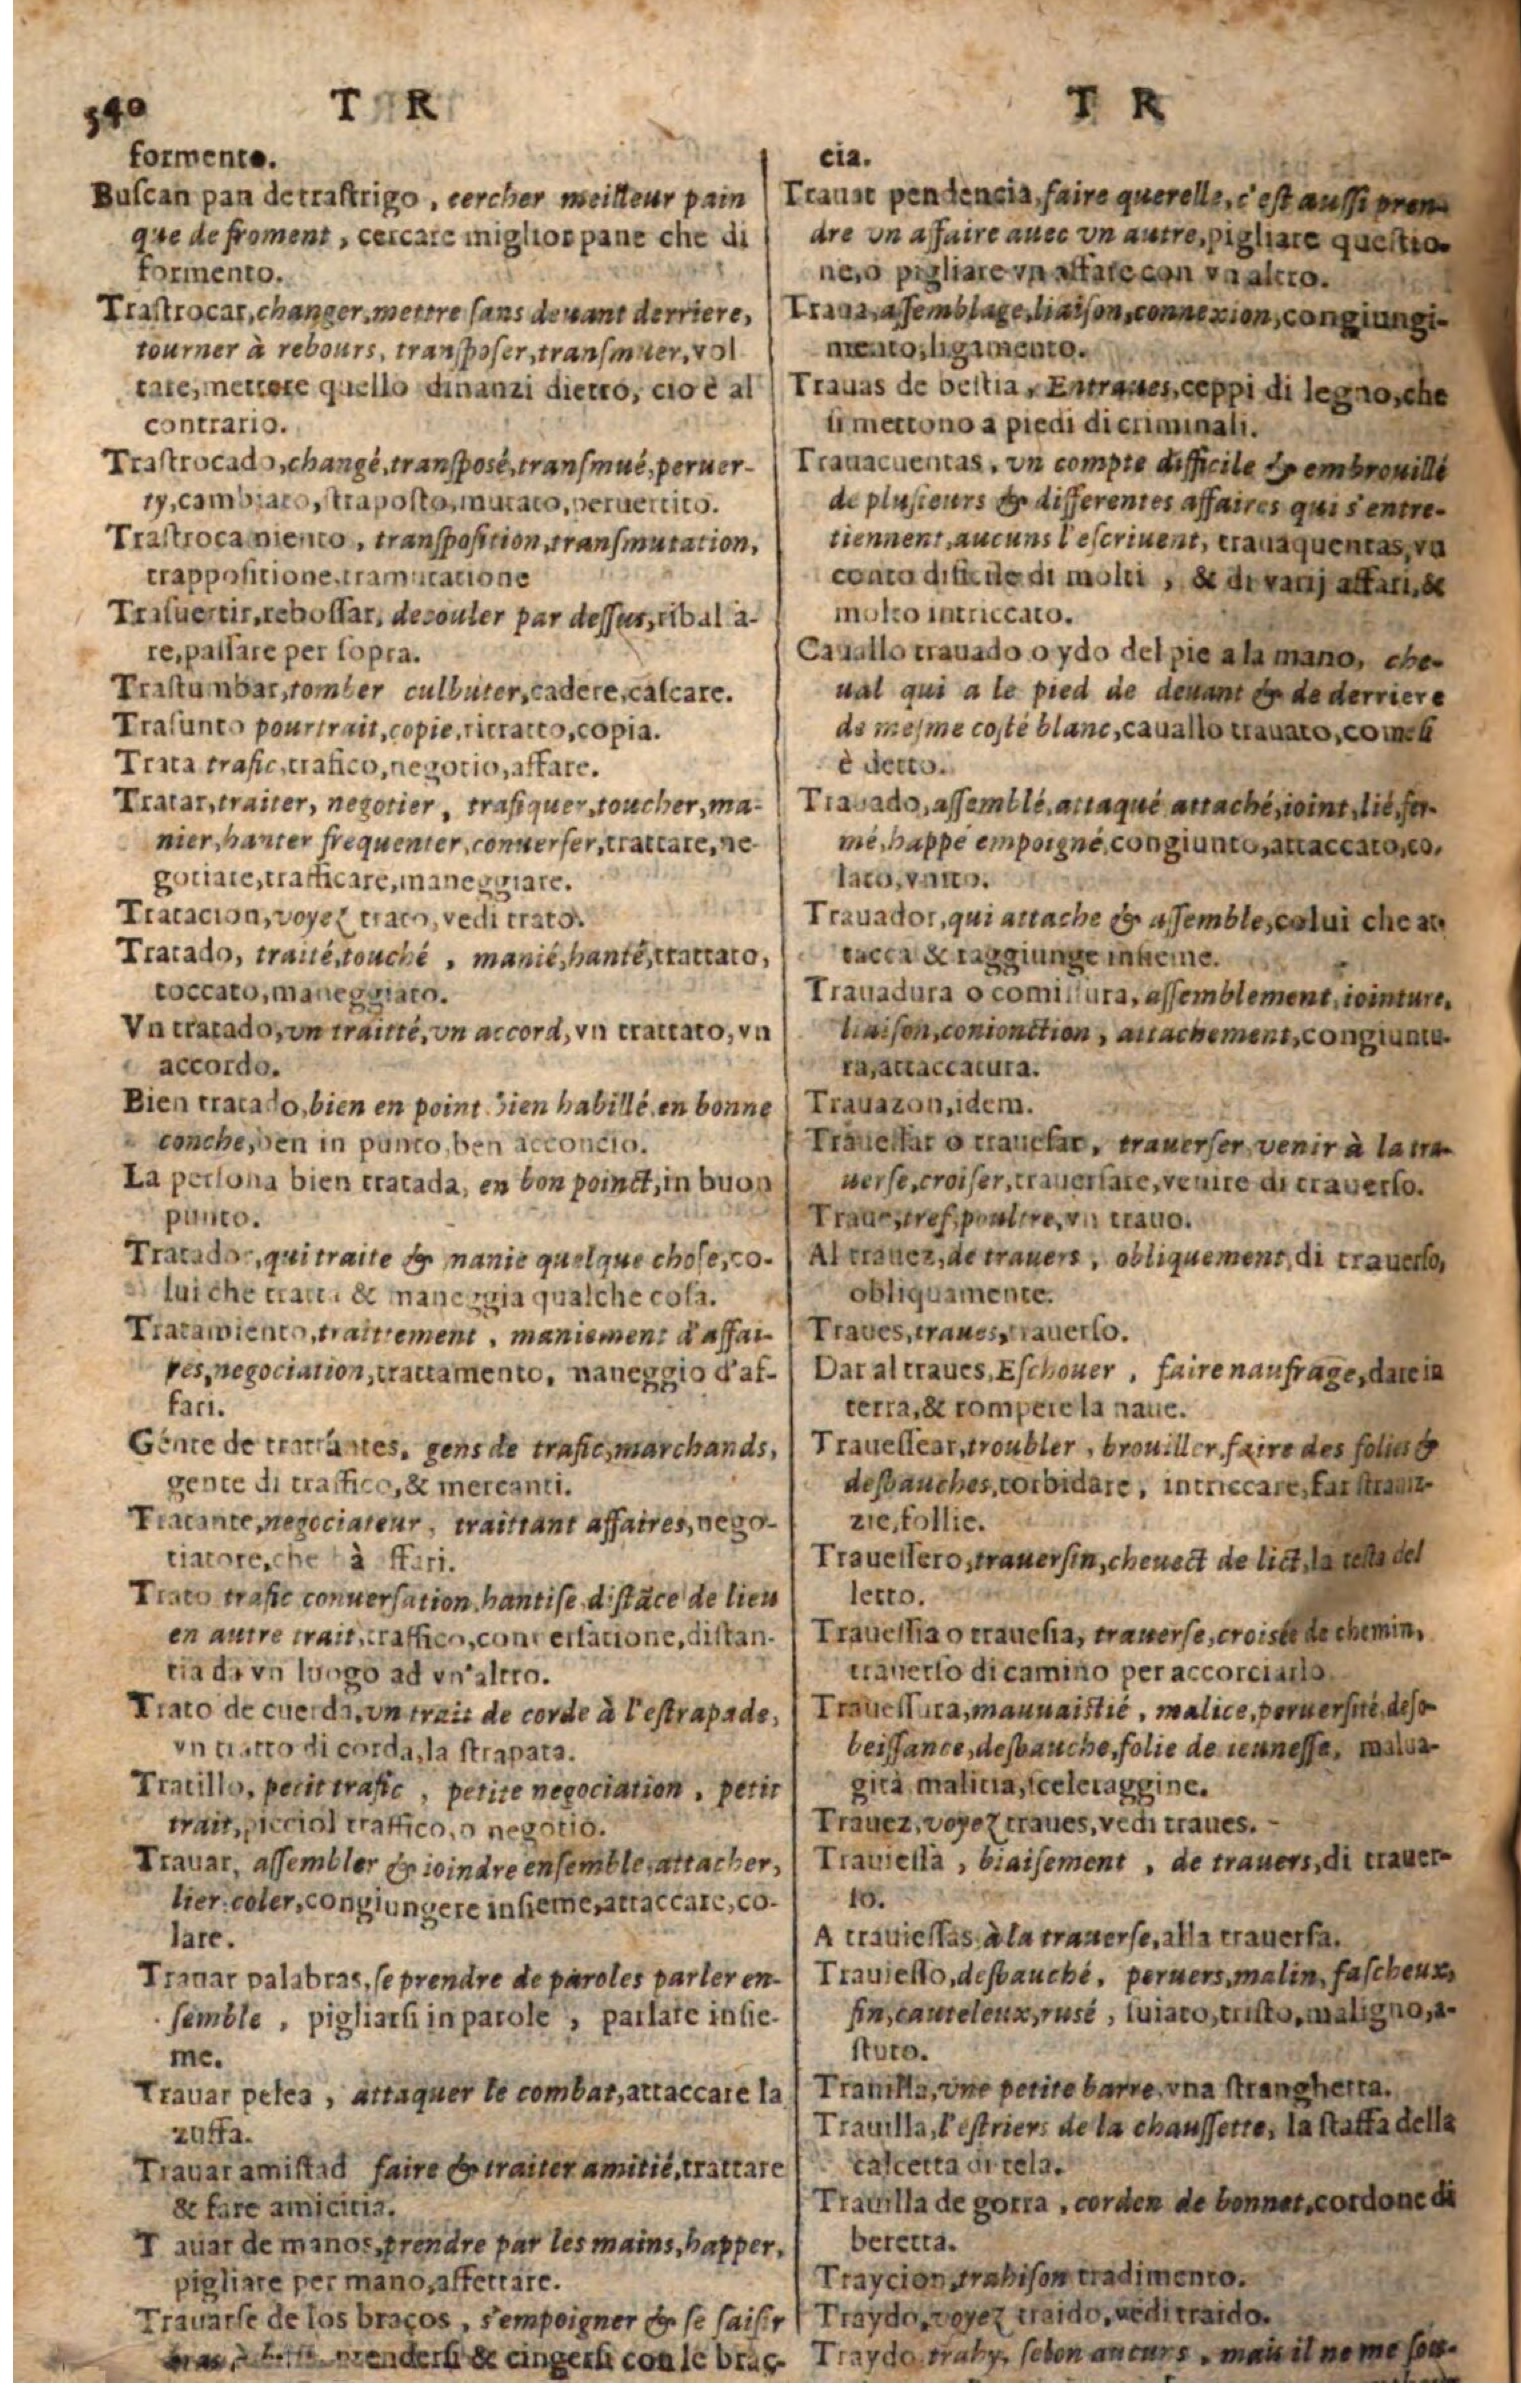 540 T R
formento.
Buſcan pan de traſtrigo, cercher meilleur pain
que de froment, cercare miglior pane che di
formento.
Traſtrocar, changer, mettre ſans deuant derriere,
tourner à rebours, tranſpoſer, tranſmuer, vol
tare, mettere quello dinanzi dietro, cio è al
contrario.
Traſtrocado, changé, tranſpoſé, tranſmué, peruer-
ty, cambiato, ſtrapoſto, mutato, peruertito.
Traſtrocamiento, tranſpoſition, tranſmutation,
trappoſitione, tramutatione
Traſuertir, reboſſar, decouler par deſſus, ribal a-
re, paſſare per ſopra.
Traſtumbar, tomber culbuter, cadere, caſcare.
Traſunto pourtrait, copie, ritratto, copia.
Trata trafic, trafico, negotio, affare.
Tratar, traiter, negotier, trafiquer, toucher, ma-
nier, hanter frequenter, conuerſer, trattare, ne-
gotiare, trafficare, maneggiare.
Tratacion, voyez trato, vedi trato.
Tratado, traité, touché, manié, hanté, trattato,
toccato, maneggiato.
Vn tratado, vn traitté, vn accord, vn trattato, vn
accordo.
Bien tratado, bien en point bien habillé en bonne
conche, ben in punto, ben acconcio.
La perſona bien tratada, en bon poinct, in buon
punto.
Tratador, qui traite & manie quelque choſe, co-
lui che tratta & maneggia qualche coſa.
Tratamiento, traittement, maniement d'affai-
res, negociation, trattamento, maneggio d'af-
fari.
Gente de tratantes, gens de trafic, marchands,
gente di traffico, & mercanti.
Tratante, negociateur, traittant affaires, nego-
tiatore, che à ffari.
Trato trafic conuerſation, hantiſe, diſtãce de lieu
en autre trait, traffico, conuerſatione, diſtan-
tia da vn luogo ad vn'altro.
Trato de cuerda, vn trait de corde à l'eſtrapade,
vn tratto di corda, la ſtrapata.
Tratillo, petit trafic, petite negociation, petit
trait, picciol traffico, o negotio.
Trauar, aſſembler & ioindre enſemble, attacher,
lier, coler, congiungere inſieme, attaccare, co-
lare.
Trauar palabras, ſe prendre de paroles parler en-
ſemble, pigliarſi in parole, parlare inſie-
me.
Trauar pelea, attaquer le combat, attaccare la
zuffa.
Trauar amiſtad faire & traiter amitié, trattare
& fare amicitia.
T auar de manos, prendre par les mains, happer,
pigliare per mano, afferrare.
Trauarſe de los braços, s'empoigner & ſe ſaiſir
prenderſi & cingerſi con le brac-
T R
cia.
Trauar pendencia, faire querelle, c'eſt auſſi pren-
dre vn affaire auec vn autre, pigliare queſtio-
ne, o pigliare vn affare con vn altro.
Traua, aſſemblage, liaiſon, connexion, congiungi-
mento, ligamento.
Trauas de beſtia, Entraues, ceppi di legno, che
ſi mettono a piedi di criminali.
Trauacuentas, vn compte difficile & embrouillé
de pluſieurs & differentes affaires qui s'entre-
tiennent, aucuns l'eſcriuent, trauaquentas, vn
conto dificile di molti, & di varij affari, &
molto intriccato.
Cauallo trauado o ydo del pie a la mano, che-
ual qui a le pied de deuant & de derriere
de meſme coſté blanc, cauallo trauato, come ſi
è detto.
Trauado, aſſemblé, attaqué attaché, ioint, lié, fer-
mé, happé empoigné, congiunto, attaccato, co-
lato, vnito.
Trauador, qui attache & aſſemble, colui che at-
tacca & raggiunge inſieme.
Trauadura o comiſſura, aſſemblement, iointure,
liaiſon, conionction, attachement, congiuntu-
ra, attaccatura.
Trauazon, idem.
Traueſſar o traueſar, trauerſer, venir à la tra-
uerſe, croiſer, trauerſare, venire di trauerſo.
Traue, tref, poultre, vn trauo.
Al trauez, de trauers, obliquement, di trauerſo,
obliquamente.
Traues, traues, trauerſo.
Dar al traues, Eſchouer, faire naufrage, dare in
terra, & rompere la naue.
Traueſſear, troubler, brouiller, faire des folies &
deſbauches, torbidare, intriccare, far ſtrauiz-
zie, follie.
Traueſſero, trauerſin, cheuect de lict, la teſta del
letto.
Traueſſia o traueſia, trauerſe, croiſee de chemin,
trauerſo di camino per accorciarlo.
Traueſſura, mauuaiſtié, malice, peruerſité, deſo-
beiſſance, deſbauche, folie de ieuneſſe, malua-
gità malitia, ſceleraggine.
Trauez, voyez traues, vedi traues.
Trauieſſa, biaiſement, de trauers, di trauer-
ſo.
A trauieſſas, à la trauerſe, alla trauerſa.
Trauieſſo, deſbauché, peruers, malin, faſcheux,
fin, cauteleux, ruſé, ſuiato, triſto, maligno, a-
ſtuto.
Trauilla, vne petite barre, vna ſtrangherra.
Trauilla, l'eſtriers de la chauſſette, la ſtaffa della
calcetta di tela.
Trauilla de gorra, cordon de bonnet, cordone di
beretta.
Traycion, trahiſon tradimento.
Traydo, voyez traido, vedi traido.
Traydo, trahy, ſelon aucuns, mais il ne me ſou-